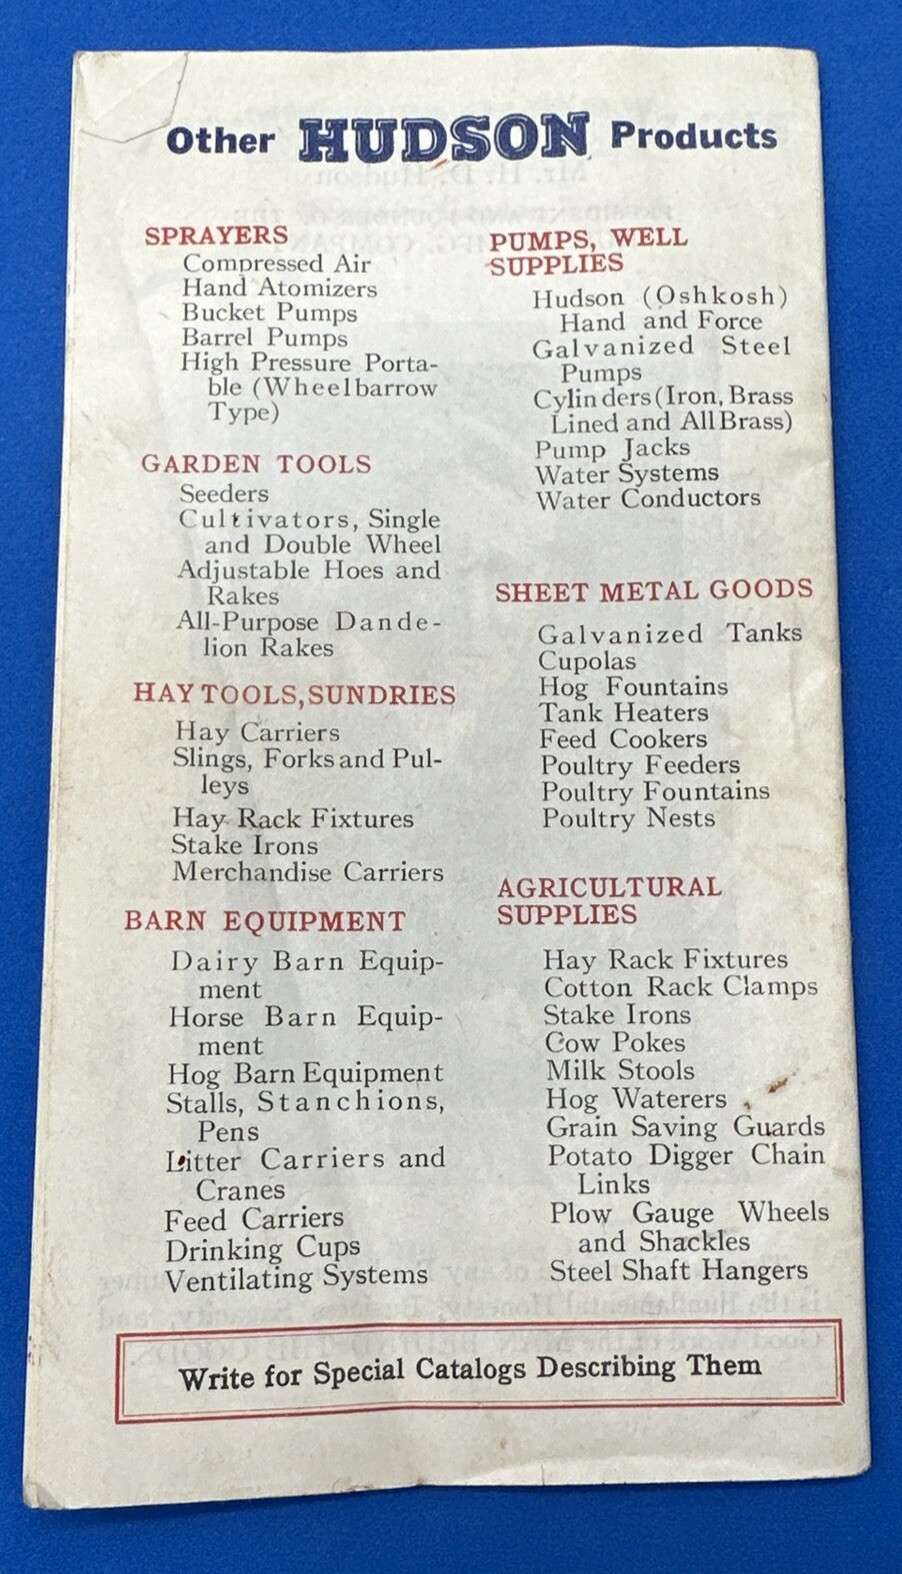 Other HUDSON Products
SPRAYERS
Compressed Air
Hand Atomizers
Bucket Pumps
Barrel Pumps
High Pressure Porta-
ble (Wheelbarrow
Type)
GARDEN TOOLS
Seeders
Cultivators, Single
and Double Wheel
Adjustable Hoes and
Rakes
All-Purpose Dande-
lion Rakes
HAY TOOLS, SUNDRIES
Hay Carriers
Slings, Forks and Pul-
leys
Hay Rack Fixtures
Stake Irons
Merchandise Carriers
BARN EQUIPMENT
Dairy Barn Equip-
ment
Horse Barn Equip-
ment
Hog Barn Equipment
Stalls, Stanchions,
Pens
Litter Carriers and
Cranes
Feed Carriers
Drinking Cups
Ventilating Systems
PUMPS, WELL
SUPPLIES
Hudson (Oshkosh)
Hand and Force
Galvanized Steel
Pumps
Cylinders (Iron, Brass
Lined and All Brass)
Pump Jacks
Water Systems
Water Conductors
SHEET METAL GOODS
Galvanized Tanks
Cupolas
Hog Fountains
Tank Heaters
Feed Cookers
Poultry Feeders
Poultry Fountains
Poultry Nests
AGRICULTURAL
SUPPLIES
Hay Rack Fixtures
Cotton Rack Clamps
Stake Irons
Cow Pokes
Milk Stools
Hog Waterers
Grain Saving Guards
Potato Digger Chain
Links
Plow Gauge Wheels
and Shackles
Steel Shaft Hangers
Write for Special Catalogs Describing Them